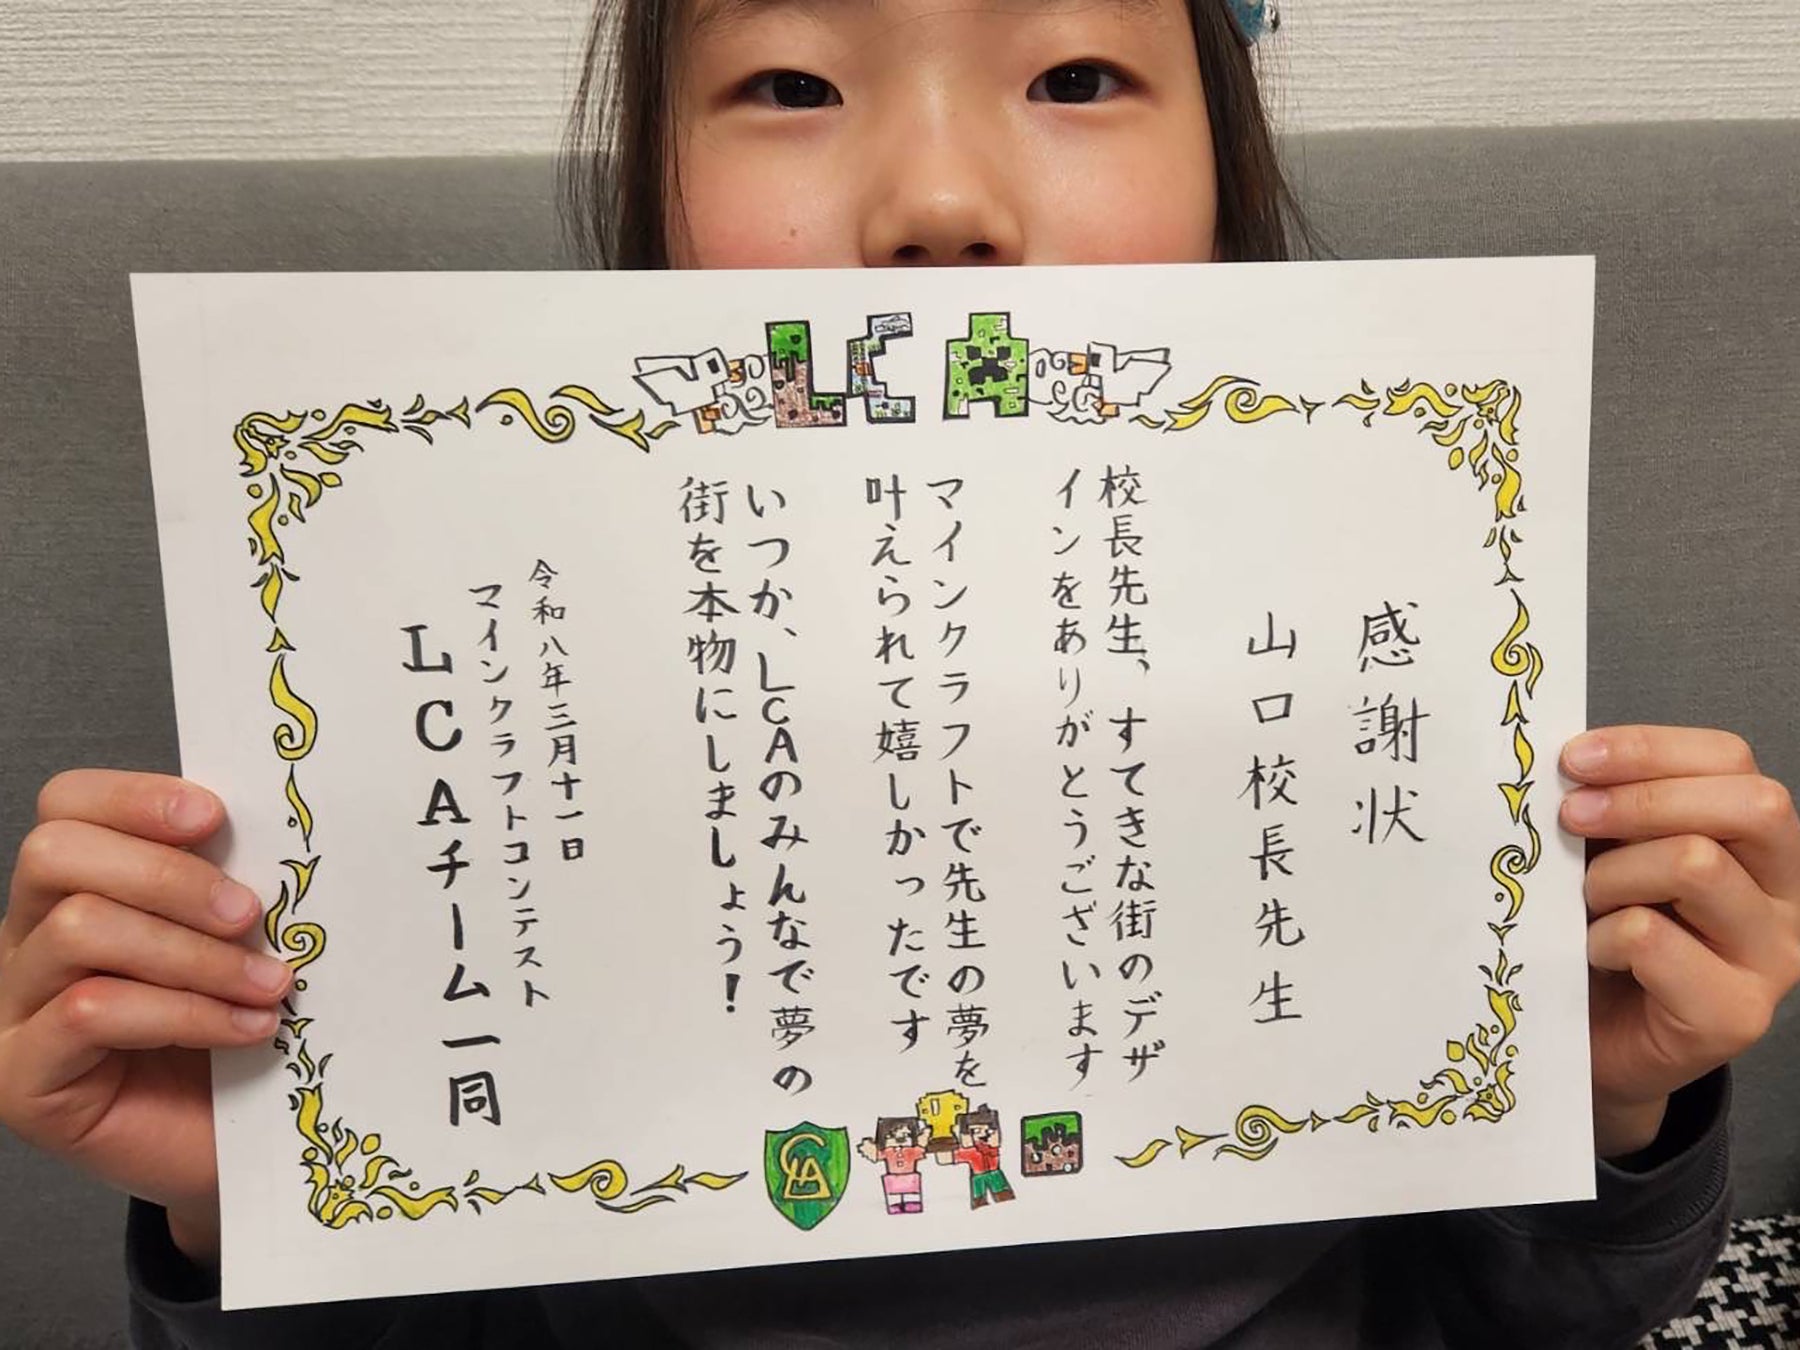 LCA
感謝状
山口校長先生
校長先生、すてきな街のデザ
インをありがとうございます
マインクラフトで先生の夢を
叶えられて嬉しかったです
いつか、LCAのみんなで夢の
街を本物にしましょう!
令和八年三月十一日
マインクラフトコンテスト
LCAチーム一同
LCA